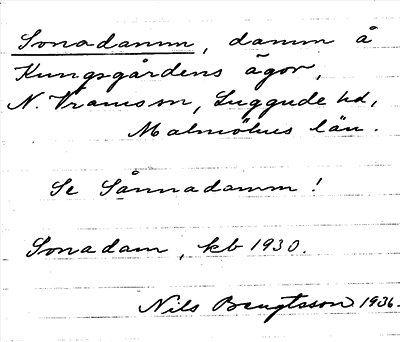 Sonadamm, damm å
Kungsgårdens ägor,
N. Vramsm, Luggude hd,
Malmöhus län.
Se Sånnadamm!
Sonadam, kb 1930.
Nils Bengtsson 1936.